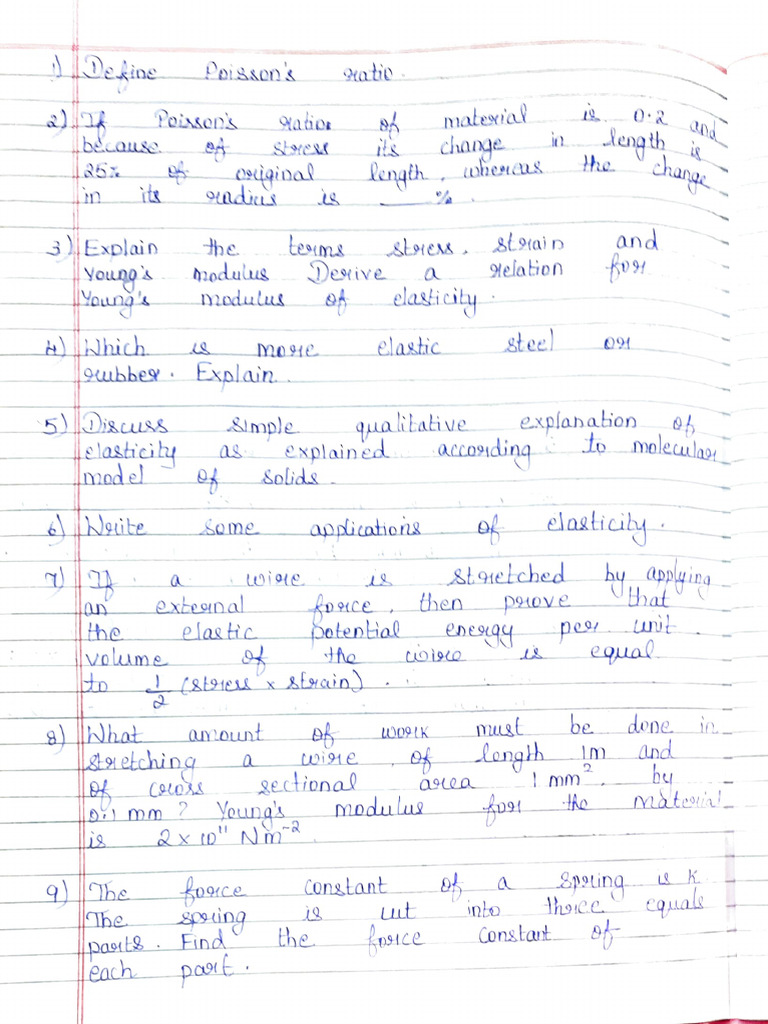 1) Define Poisson's ratio.
2) If Poisson's ratio of material is 0.2 and
because of stress its change in length is
25% of original length, whereas the change
in its radius is ___ %.
3) Explain the terms stress, strain and
Young's modulus Derive a relation for
Young's modulus of elasticity.
4) Which is more elastic steel or
rubber. Explain.
5) Discuss simple qualitative explanation of
elasticity as explained according to molecular
model of solids.
6) Write some applications of elasticity.
7) If a wire is stretched by applying
an external force, then prove that
the elastic potential energy per unit
volume of the wire is equal
to 1/2 (stress x strain).
8) What amount of work must be done in
stretching a wire, of length 1m and
of cross sectional area 1 mm², by
0.1 mm? Young's modulus for the material
is 2 x 10¹¹ Nm⁻²
9) The force constant of a spring is K
The spring is cut into three equals
parts. Find the force constant of
each part.